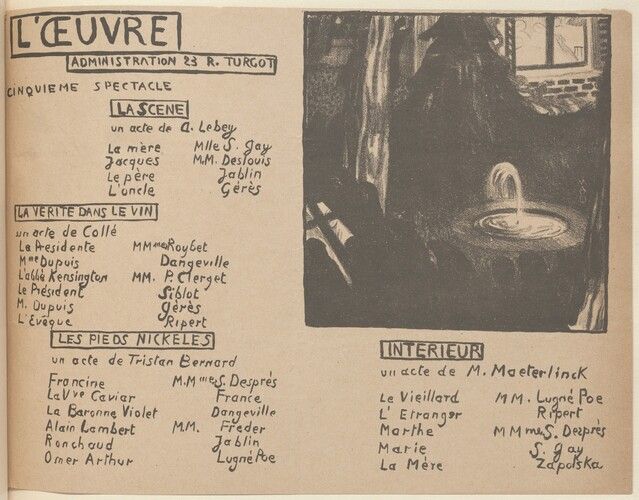 L'ŒUVRE
ADMINISTRATION 23 R. TURGOT
CINQUIEME SPECTACLE
LA SCENE
un acte de A. Lebey
La mère Mlle S. Gay
Jacques M.M. Deslouis
Le père Jablin
L'oncle Gérès
LA VERITE DANS LE VIN
un acte de Collé
La Présidente MMmes Roybet
Mme Dupuis Dangeville
L'abbé Kensington MM. P. Clerget
Le Président Siblot
M. Dupuis Gérès
L'Evêque Ripert
LES PIEDS NICKELES
un acte de Tristan Bernard
Francine M.Mmes S. Després
La Vve Caviar France
La Baronne Violet Dangeville
Alain Lambert MM. Freder
Ronchaud Jablin
Omer Arthur Lugné Poe
INTERIEUR
un acte de M. Maeterlinck
Le Vieillard MM. Lugné Poe
L'Etranger Ripert
Marthe MMmes S. Després
Marie S. Gay
La Mère Zapolska